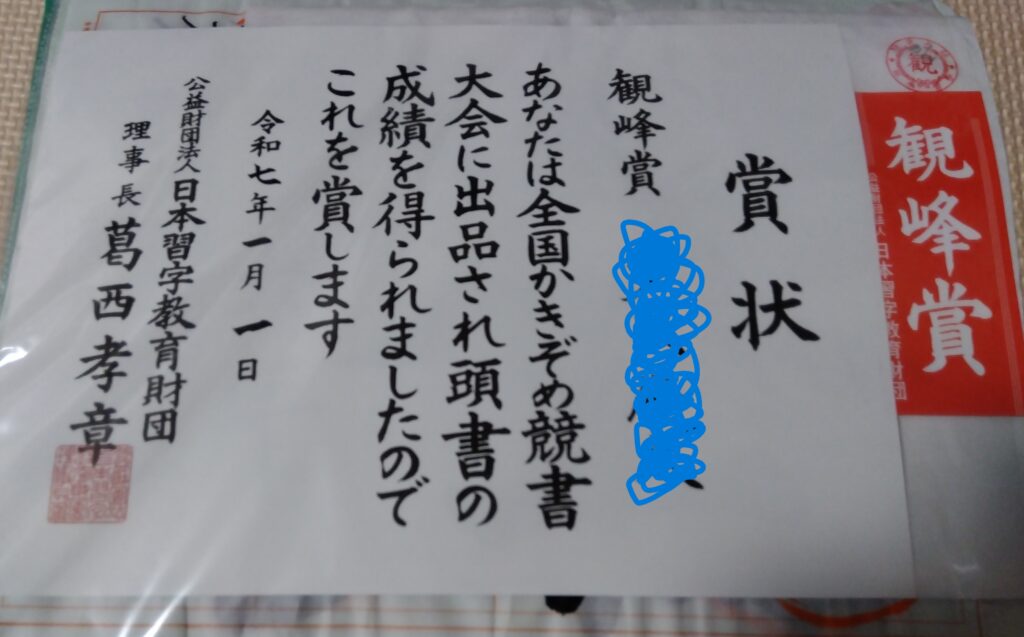 賞状
観峰賞
あなたは全国かきぞめ競書
大会に出品され頭書の
成績を得られましたので
これを賞します
令和七年一月一日
公益財団法人日本習字教育財団
理事長 葛西孝章
観
観峰賞
公益財団法人日本習字教育財団